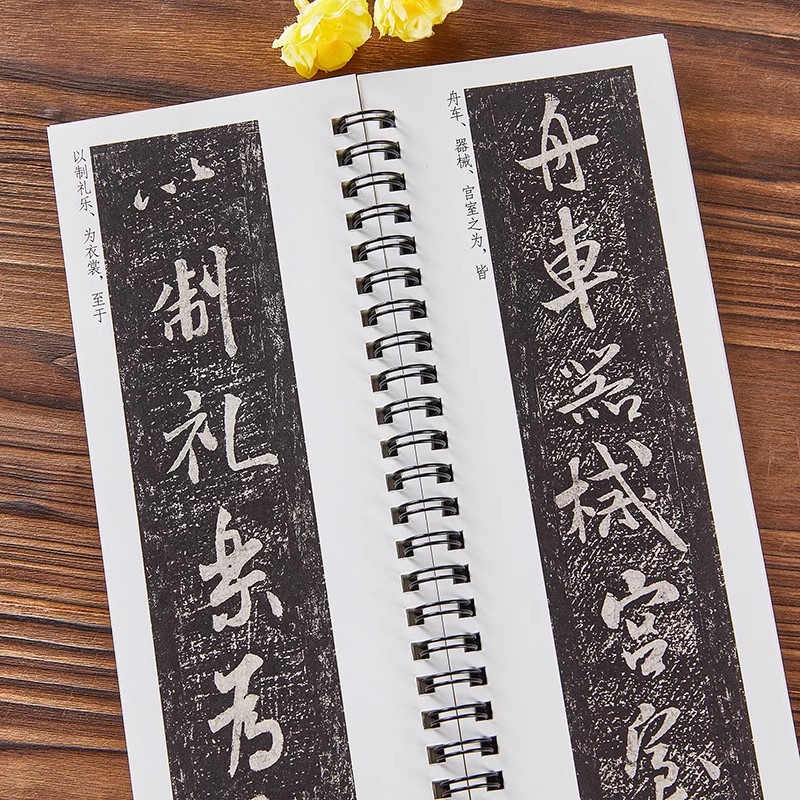 以制礼乐、为衣裳，至于
以制礼樂為
舟车、器械、宫室之为，皆
舟車器械宮室